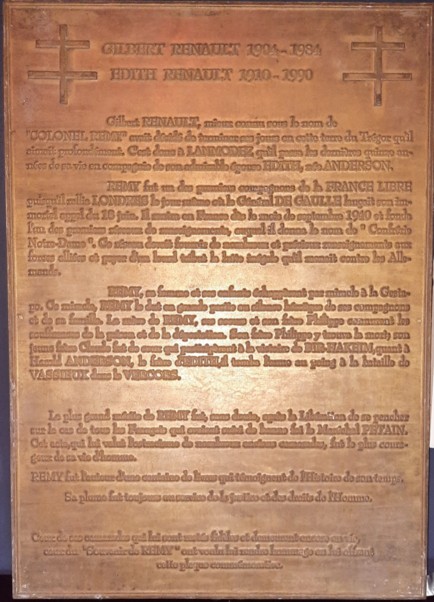 GILBERT RENAULT 1904-1984
EDITH RENAULT 1910-1990
Gilbert RENAULT, mieux connu sous le nom de
"COLONEL REMY" avait décidé de terminer ses jours en cette terre du Trégor qu'il
aimait profondément. C'est donc à LANMODEZ, qu'il passa les dernières quinze an-
nées de sa vie en compagnie de son admirable épouse EDITH, née ANDERSON.
REMY fut un des premiers compagnons de la FRANCE LIBRE
puisqu'il rallia LONDRES le jour même où le Général DE GAULLE lançait son im-
mortel appel du 18 juin. Il rentra en France dès le mois de septembre 1940 et fonda
l'un des premiers réseaux de renseignements, auquel il donna le nom de "Confrérie
Notre-Dame". Ce réseau devait fournir de nombreux et précieux renseignements aux
forces alliées et payer d'un lourd tribut la lutte inégale qu'il menait contre les Alle-
mands.
REMY, sa femme et ses enfants échappèrent par miracle à la Gesta-
po. Ce miracle, REMY le dut en grande partie au silence héroïque de ses compagnons
et de sa famille. La mère de REMY, ses soeurs et son frère Philippe connurent les
souffrances de la prison et de la déportation. Son frère Philippe y trouva la mort; son
jeune frère Claude fut de ceux qui participèrent à la victoire de BIR-HAKEIM, quant à
Harald ANDERSON, le frère d'EDITH, il tomba l'arme au poing à la bataille de
VASSIEUX dans le VERCORS.
Le plus grand mérite de REMY fut, sans doute, après la Libération de se pencher
sur le cas de tous les Français qui avaient suivi de bonne foi le Maréchal PETAIN.
Cet acte, qui lui valut l'ostracisme de nombreux anciens camarades, fut le plus coura-
geux de sa vie d'homme.
REMY fut l'auteur d'une centaine de livres qui témoignent de l'Histoire de son temps.
Sa plume fut toujours au service de la justice et des droits de l'Homme.
Ceux de ses camarades qui lui sont restés fidèles et demeurent encore en vie,
ceux du "Souvenir de REMY" ont voulu lui rendre hommage en lui offrant
cette plaque commémorative.